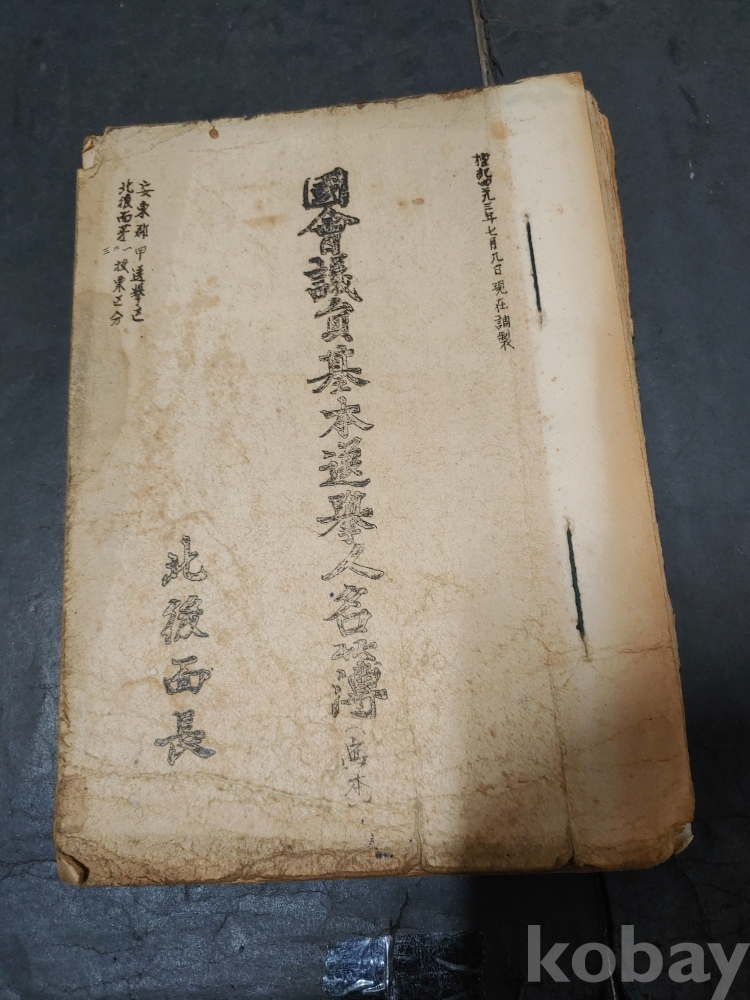 檀紀四二九三年七月九日 現在調製
國會議員基本選擧人名簿
安東郡甲選擧区
北後面第一二三投票区分
北後面長
kobay